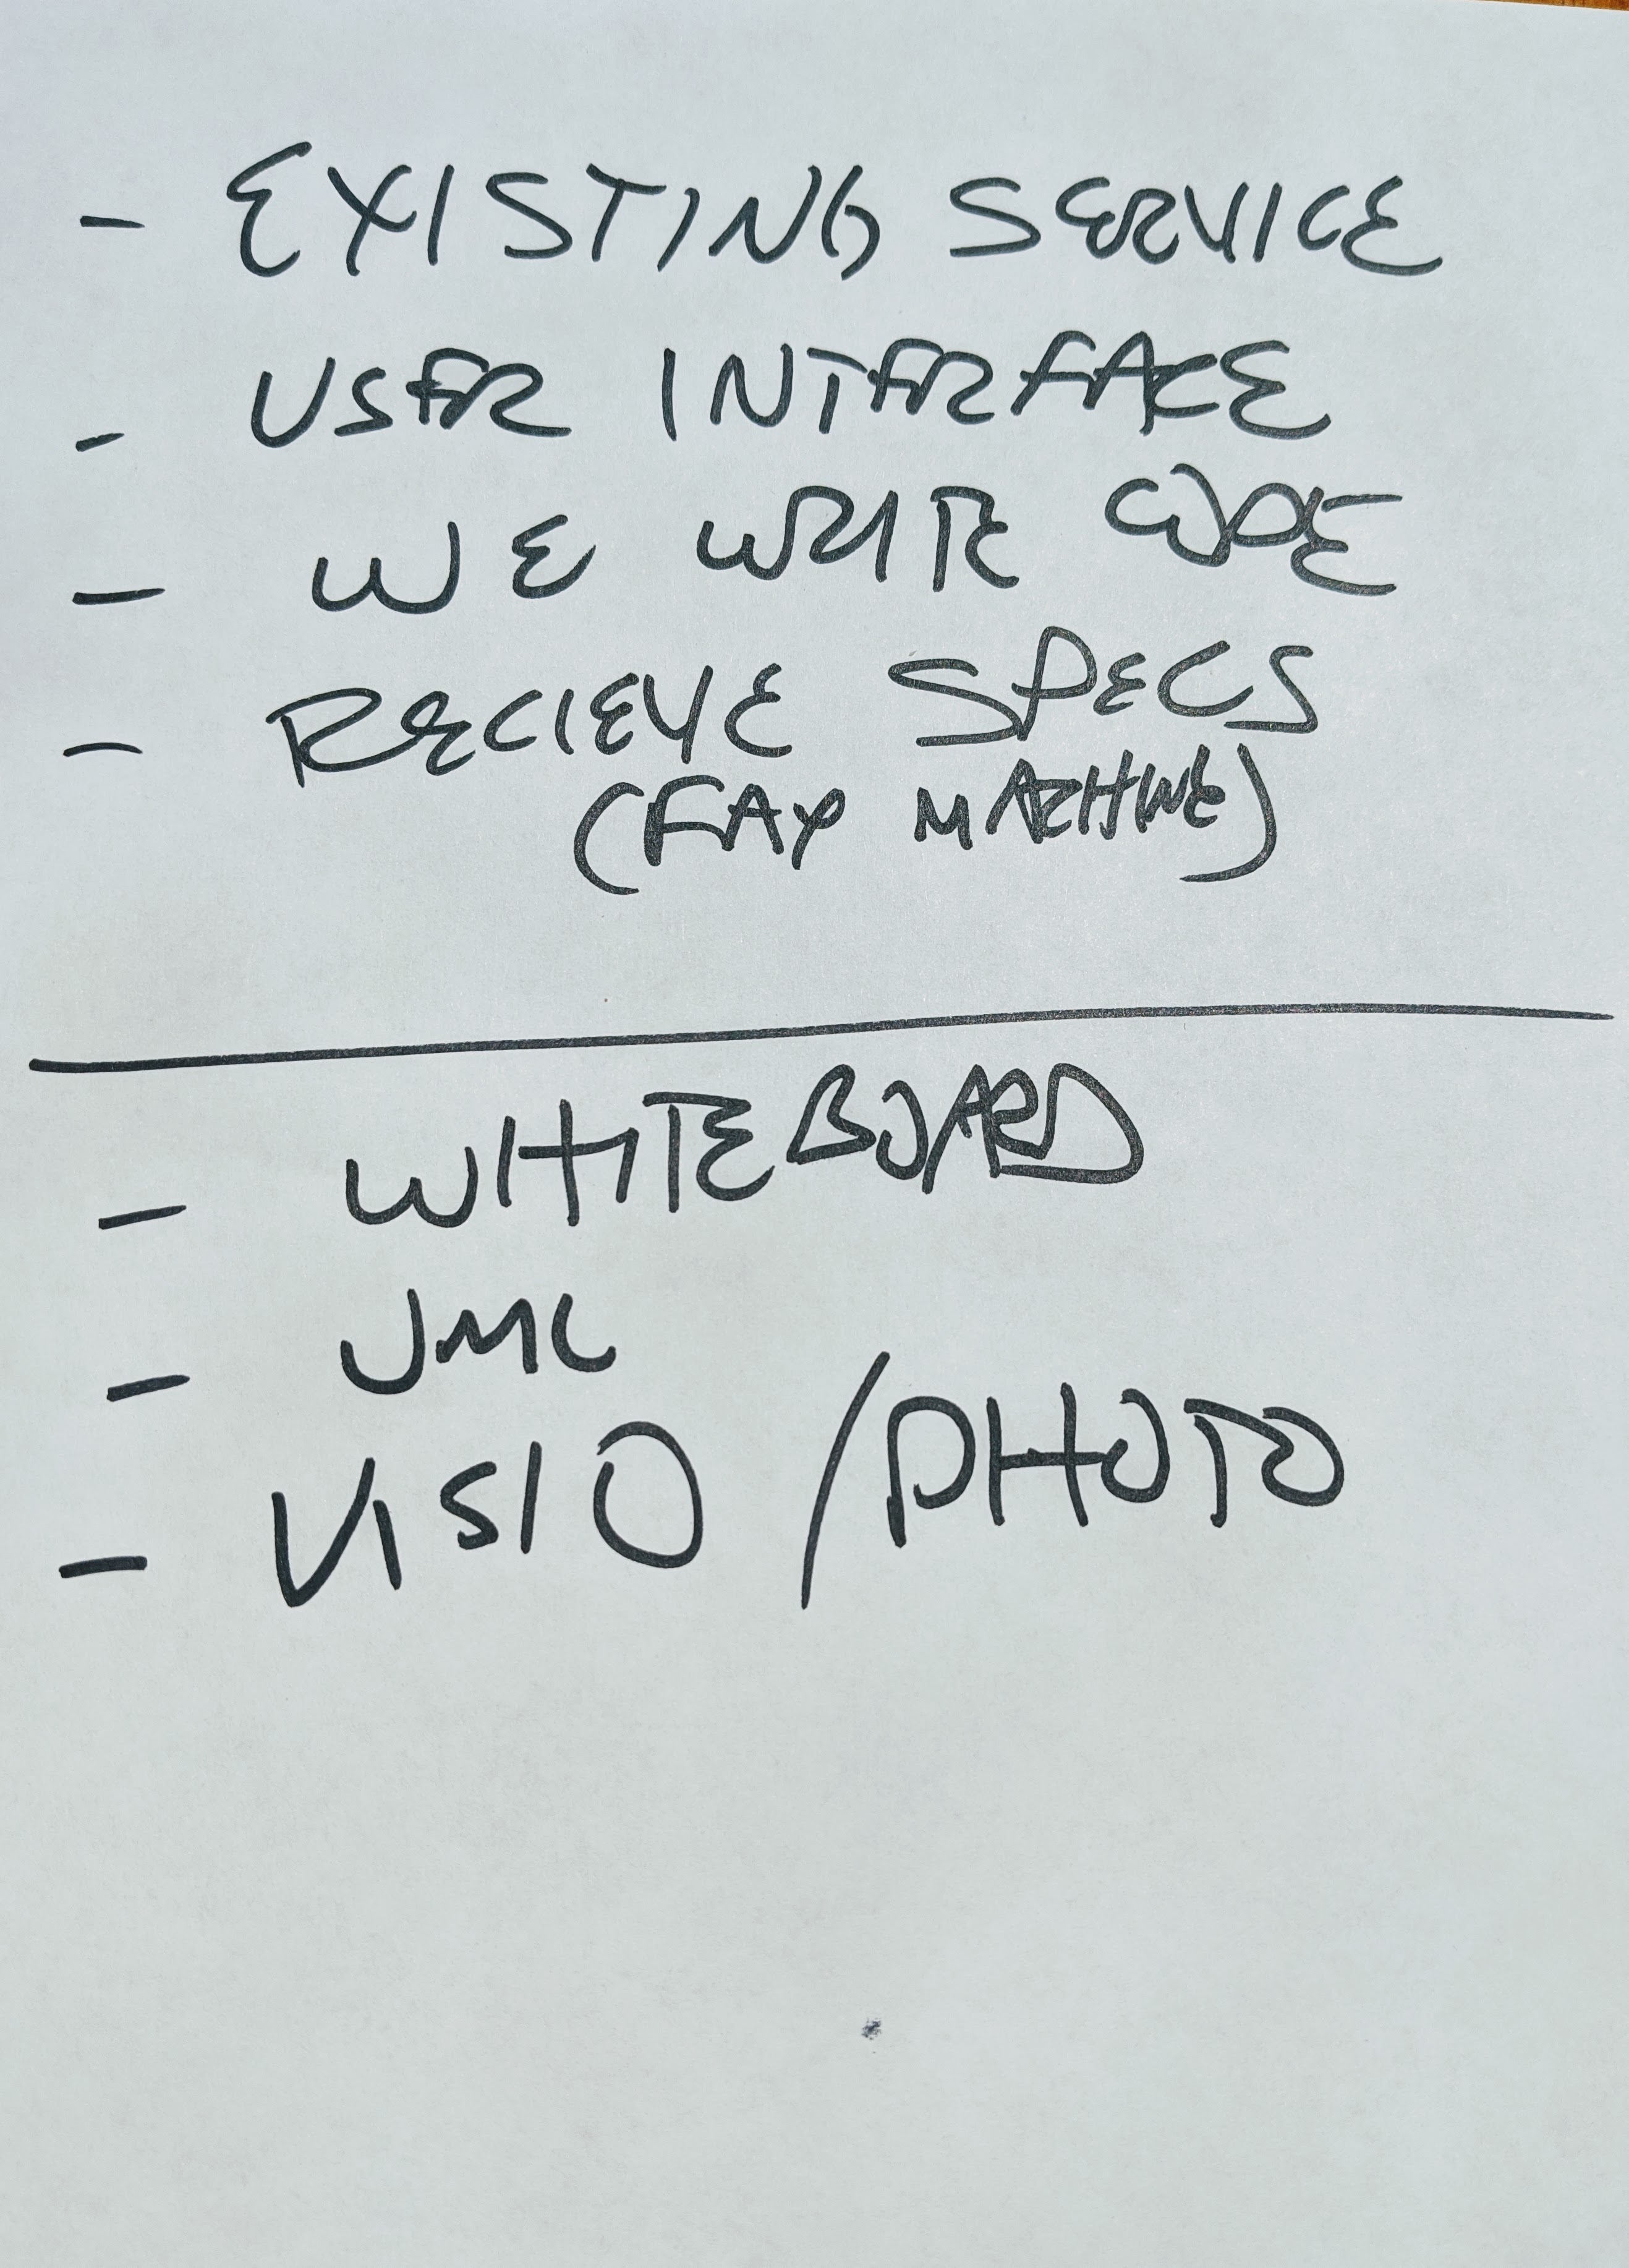 - EXISTING SERVICE
- USER INTERFACE
- WE WRITE CODE
- RECIEVE SPECS
(FAX MACHINE)
- WHITEBOARD
- UML
- VISIO / PHOTO